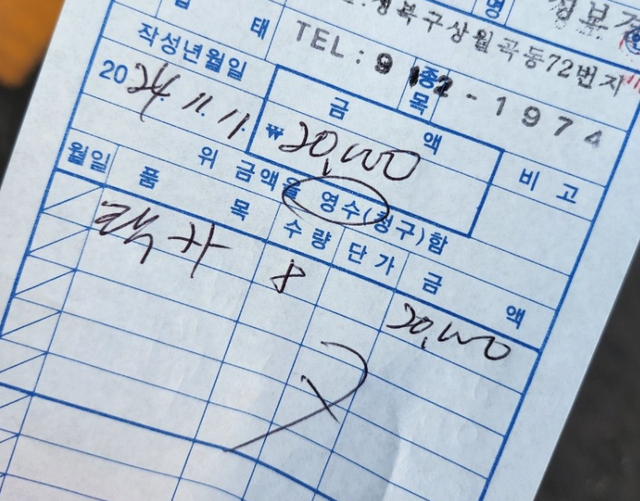 태 성북구상월곡동72번지
TEL : 912 - 1974
종목
작성년월일 금 액 비 고
2024. 11. 11. ₩ 20,000
위 금액을 영수(청구)함
월일 품 목 수 량 단 가 금 액
8 20,000